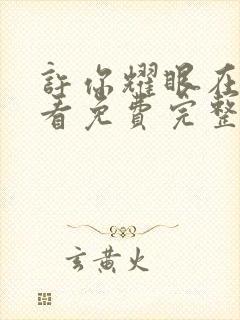 許你耀眼在
看免費完整
玄黄火